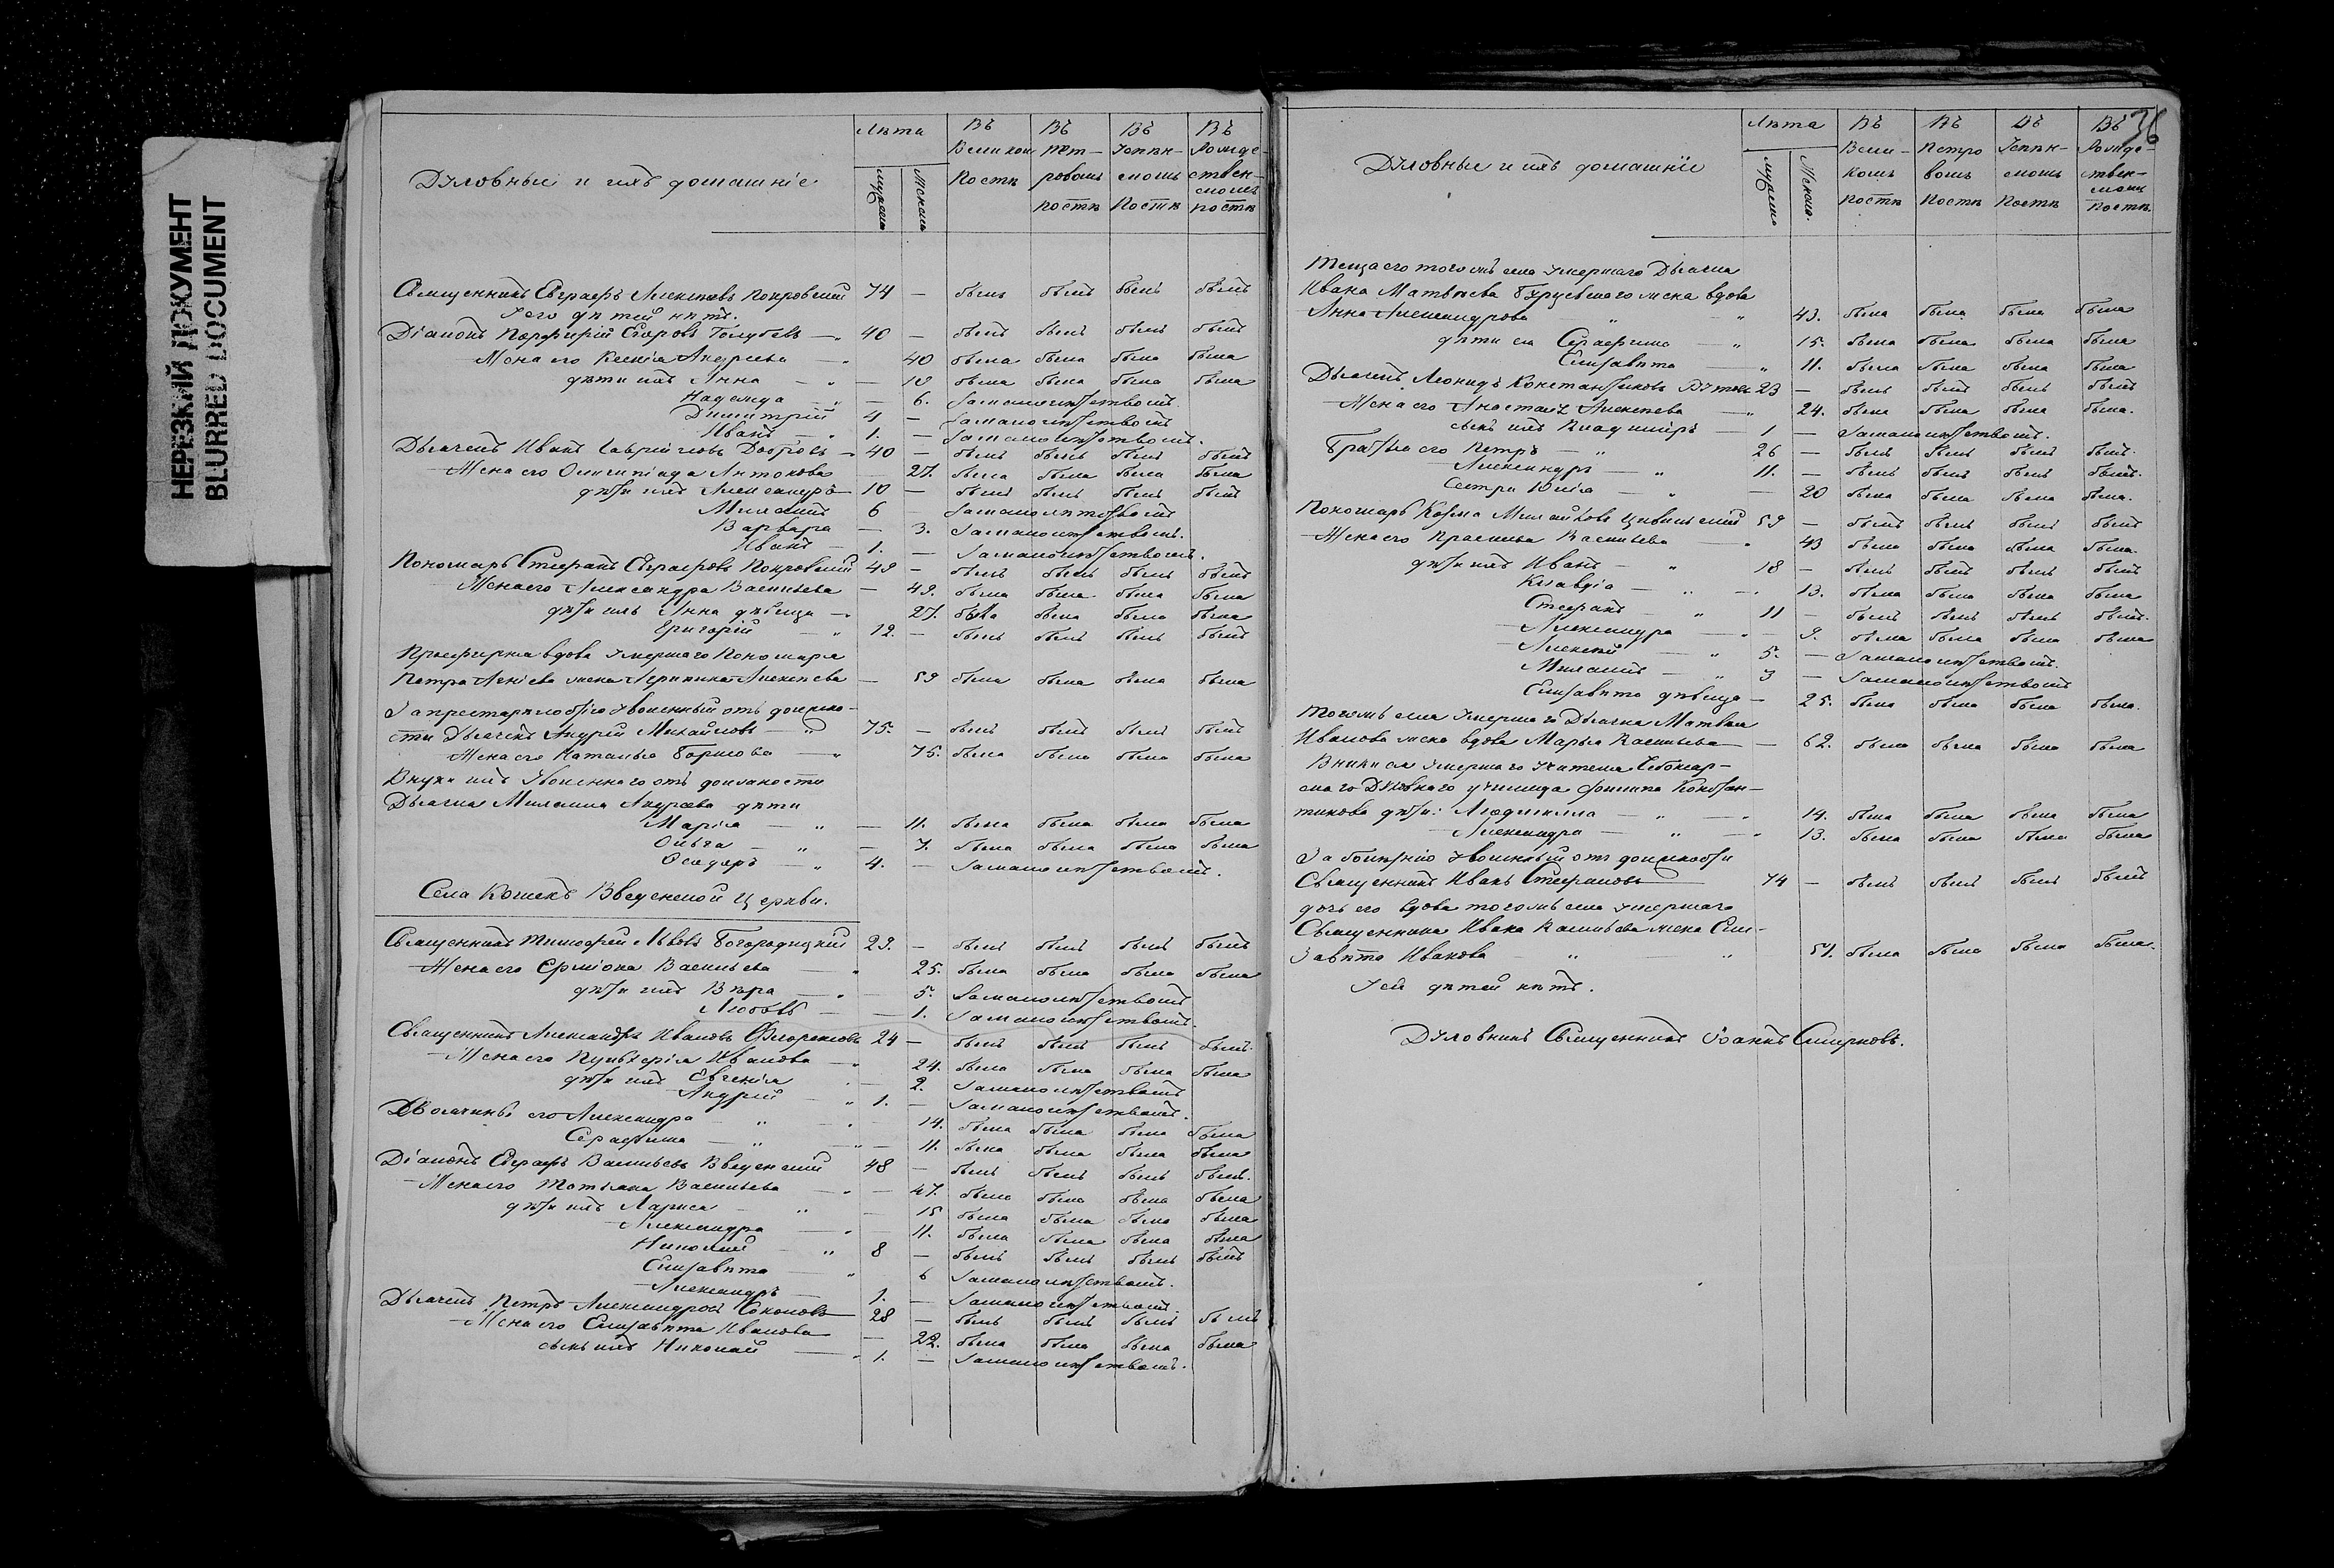 НЕРЕЗКИЙ ДОКУМЕНТ
BLURRED DOCUMENT
Духовные и ихъ домашніе
Лѣта
мужска
женска
Въ Великом Постѣ
Въ Петровомъ постѣ
Въ Успенскомъ Постѣ
Въ Рождественскомъ постѣ
Священникъ Евграфъ Алексѣевъ Покровскій 74 — былъ былъ былъ былъ
У его дѣтей нѣтъ.
Діаконъ Порфирій Егоровъ Голубевъ — 40 — былъ былъ былъ былъ
Жена его Ксенія Андреева — 40 была была была была
дѣти ихъ Анна — — 10 была была была была
Надежда — — 6. За малолѣтствомъ
Димитрій 4 — За малолѣтствомъ
Иванъ — 1. — За малолѣтствомъ.
Дьячекъ Иванъ Гавриловъ Добровъ — 40 — былъ былъ былъ былъ
Жена его Олимпіада Антонова — 27. была была была была
дѣти ихъ Александръ 10 — былъ былъ былъ былъ
Михаилъ 6 За малолѣтствомъ
Варвара — 3. За малолѣтствомъ.
Иванъ — 1. — За малолѣтствомъ.
Пономарь Стефанъ Евграфовъ Покровскій 49 — былъ былъ былъ былъ
Жена его Александра Васильева — 49. была была была была
дѣти ихъ Анна дѣвица — 27. была была была была
Григорій — " 12. — былъ былъ былъ былъ
Просфирня вдова умершаго Пономаря
Петра жена Алексѣева — 59 была была была была
За престарѣлостію уволенный отъ должно-
сти Дьячекъ Андрей Михайловъ — " 75. — былъ былъ былъ былъ
Жена его Наталья Борисова — " 75. была была была была
Внуки ихъ уволеннаго отъ должности
Дьячка Михаила Андреева дѣти
Марія — " — 11. была была была была
Ольга — " — 7. была была была была
Ѳедоръ — " 4. — За малолѣтствомъ.
Села Кошекъ Введенской Церкви.
Священникъ Тимофей Львовъ Богородицкій 29. — былъ былъ былъ былъ
Жена его Ерміона Васильева — " 25. была была была была
дѣти ихъ Вѣра — " — 5. За малолѣтствомъ
Любовь — — 1. За малолѣтствомъ.
Священникъ Александръ Ивановъ 24 — былъ былъ былъ былъ.
Жена его Пульхерія Иванова — " 24. была была была была
дѣти ихъ Евгенія — 2. За малолѣтствомъ
Андрей — " 1. — За малолѣтствомъ.
его Александра — " — " 14. была была была была
Серафима — " — " — 11. была была была была
Діаконъ Евграфъ Васильевъ Введенскій 48 — былъ былъ былъ былъ.
Жена его Татьяна Васильева — " — 47. была была была была
дѣти ихъ Лариса — " — 15 была была была была
Александра — " 11. была была была была
Николай — " 8 — былъ былъ былъ былъ
Елизавета — " 6 За малолѣтствомъ.
Александръ — 1. — За малолѣтствомъ.
Дьячекъ Петръ Александровъ Соколовъ 28 — былъ былъ былъ былъ
Жена его Елизавета Иванова — 22. была была была была
сынъ ихъ Николай — " 1. — За малолѣтствомъ.
36
Духовные и ихъ домашніе
Лѣта
мужска
женска.
Въ Великомъ постѣ
Въ Петровомъ Постѣ
Въ Успенскомъ Постѣ
Въ Рождественскомъ Постѣ.
Теща его тогожъ села умершаго Дьячка
Ивана Матвѣева жена вдова
Анна Александрова " " 43. была была. была была
дѣти ея Серафима — " 15. была была была была
Елизавета " 11. была была была была
Дьячекъ Леонидъ Константиновъ 23 — былъ былъ былъ былъ
Жена его Анастасія Алексѣева — " 24. была была была была.
сынъ ихъ Владиміръ — 1 — За малолѣтствомъ.
Братья его Петръ — " 26 — былъ былъ былъ былъ.
Александръ — " 11. — былъ былъ былъ былъ.
Сестра Юлія — " — 20 была была была была.
Пономарь Козма Михайловъ Цивильскій 59 — былъ былъ былъ былъ
Жена его Васильева — " 43 была была была была.
дѣти ихъ Иванъ — " 18 — былъ былъ былъ былъ
Клавдія — " — 13. была была была была
Стефанъ — " 11 — былъ былъ былъ былъ.
Александра — " — 9. была была была была
Алексѣй — " 5. — За малолѣтствомъ.
Михаилъ — " 3 — За малолѣтствомъ
Елизавета дѣвица — 25. была была была была.
Тогожъ села умершаго Дьячка Матвѣя
Иванова жена вдова Марья Васильева — 62. была была была была
Внуки ея умершаго Учителя Чебоксар-
скаго Духовнаго училища Филиппа Констан-
тинова дѣти: Людмила — " — 14. была была была была
Александра — " — " 13. была была была была
За болѣзнію уволенный отъ должности
Священникъ Иванъ Стефановъ 74 — былъ былъ былъ былъ
дочь его вдова тогожъ села умершаго
Священника Ивана Васильева жена Ели-
завета Иванова " " 51. была была была была.
У ея дѣтей нѣтъ.
Духовникъ Священникъ Іоаннъ Смирновъ.